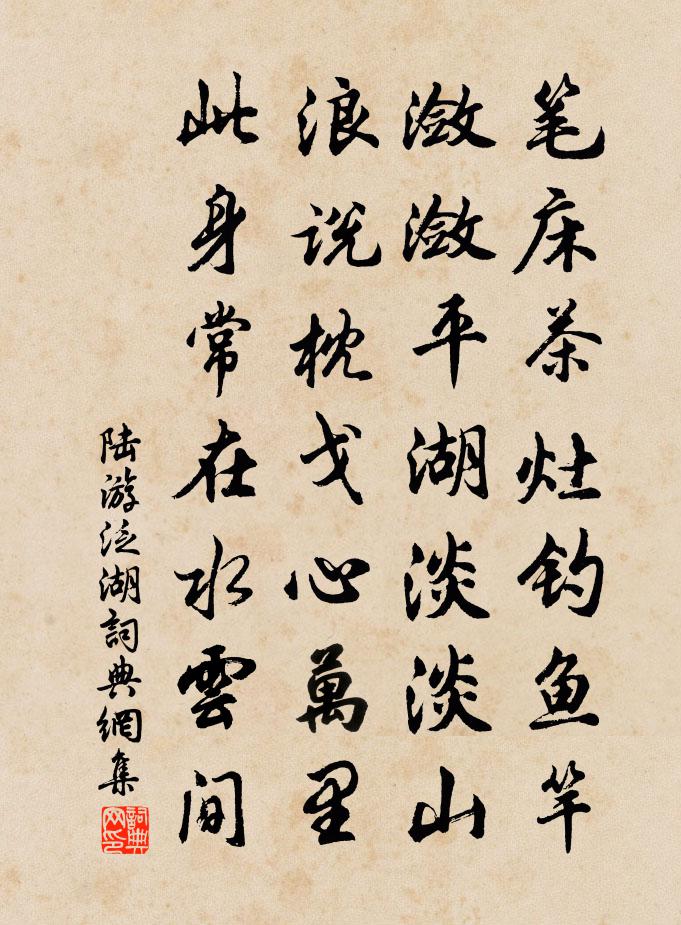 笔床茶灶钓鱼竿
潋潋平湖淡淡山
浪说枕戈心萬里
此身常在水雲间
陆游泛湖詞典網集
詞典网印